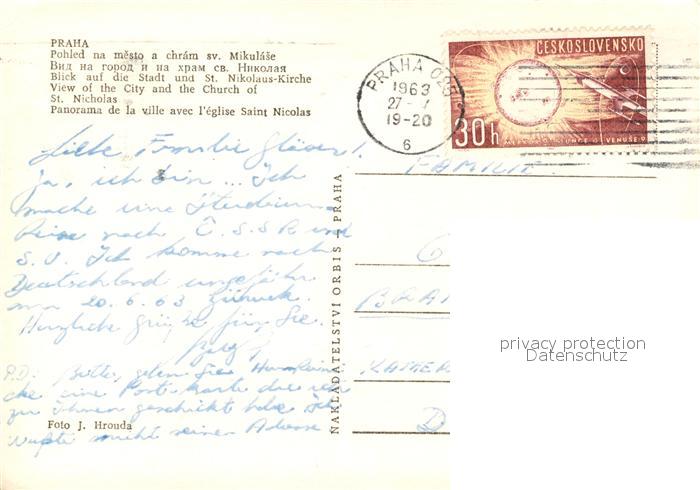 PRAHA
Pohled na město a chrám sv. Mikuláše
Вид на город и на храм св. Николая
Blick auf die Stadt und St. Nikolaus-Kirche
View of the City and the Church of
St. Nicholas
Panorama de la ville avec l'église Saint Nicolas
PRAHA 02
1963
19-20
6
ČESKOSLOVENSKO
30h
SLUNCE
VENUŠE
Liebe Familie Gläser!
Ja, ich bin ... Ich
mache eine
Reise nach Č.S.S.R und
S.U. Ich komme nach
Deutschland ungefähr
am 20.6.63 zurück.
Herzliche Grüße für Sie.
P.D. Bitte, geben Sie
eine Postkarte die ich
zu Ihnen geschickt habe. Ich
wußte nicht seiner Adresse
Foto J. Hrouda
NAKLADATELSTVÍ ORBIS – PRAHA
FAMILIE
G
KAISER
D
privacy protection
Datenschutz